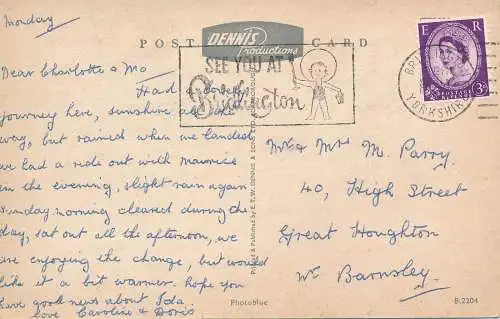 Monday
DENNIS
Productions
POST CARD
SEE YOU AT
Bridlington
E R
POSTAGE
3D
YORKSHIRE
Dear Charlotte & Mo
Had a lovely
journey here, sunshine all the
way, but rained when we landed
we had a ride out with Maurice
in the evening, slight rain again
Sunday morning cleared during the
day, sat out all the afternoon, we
are enjoying the change, but would
like it a bit warmer. Hope you
have good news about Ida.
love Caroline & Doris
Mr & Mrs M. Parry.
40, High Street
Great Houghton
Nr Barnsley
Photoblue
B.2204